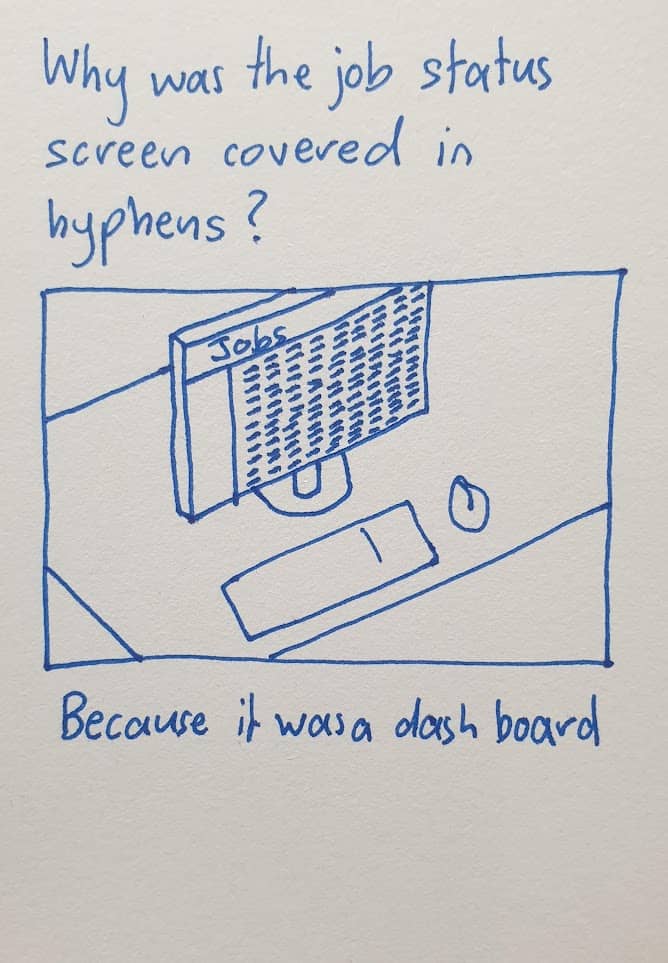 Why was the job status
screen covered in
hyphens?
Jobs
Because it was a dash board